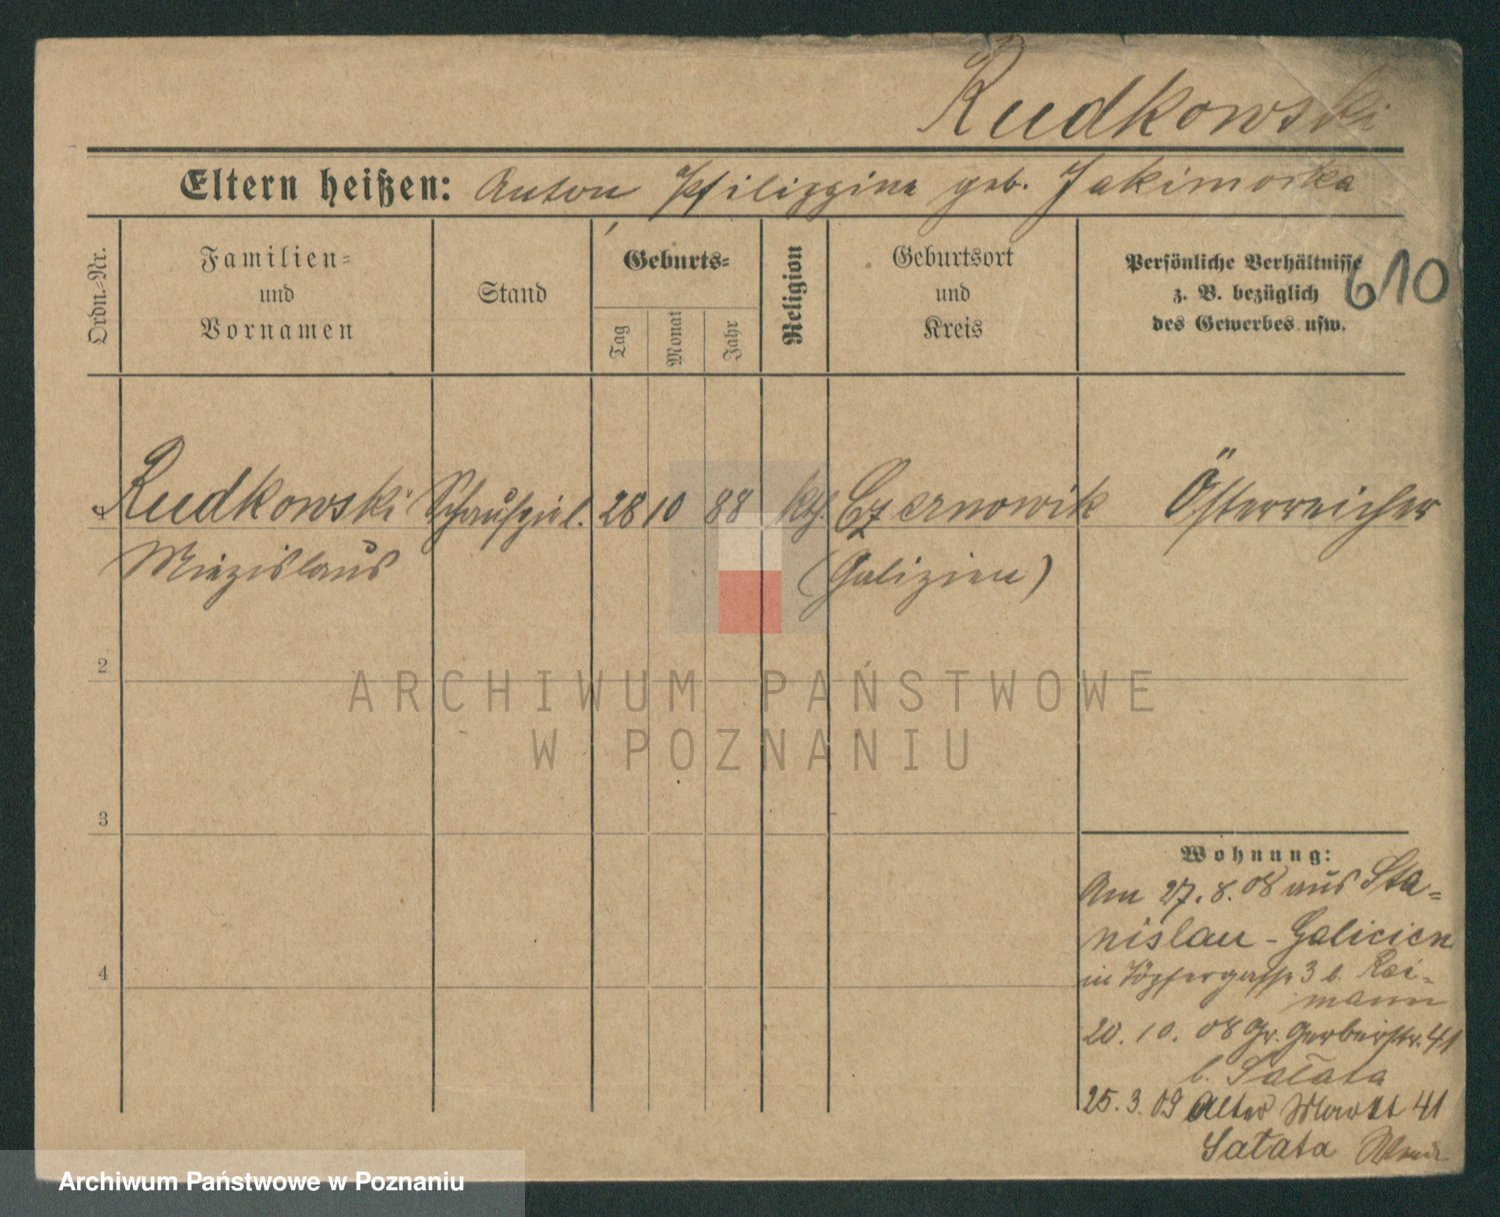 Rudkowski
Eltern heißen: Anton Philippina geb. Jakimorka
Ordn.-Nr.
Familien- und Vornamen
Stand
Geburts-
Tag
Monat
Jahr
Religion
Geburtsort und Kreis
Persönliche Verhältnisse
z. B. bezüglich
des Gewerbes usw.
610
1 Rudkowski Schauspiel. 28 10 88 kth. Czernowik Österreicher
Miezislaus (Galizien)
2
ARCHIWUM PAŃSTWOWE
W POZNANIU
3
Wohnung:
Am 27.8.08 aus Sta-
nislau - Galicien
in Töpfergasse 3 b. Rei-
mann
20. 10. 08 Gr. Gerberstr. 41
b. Sałata
25. 3. 09 Alter Markt 41
Sałata
4
Archiwum Państwowe w Poznaniu